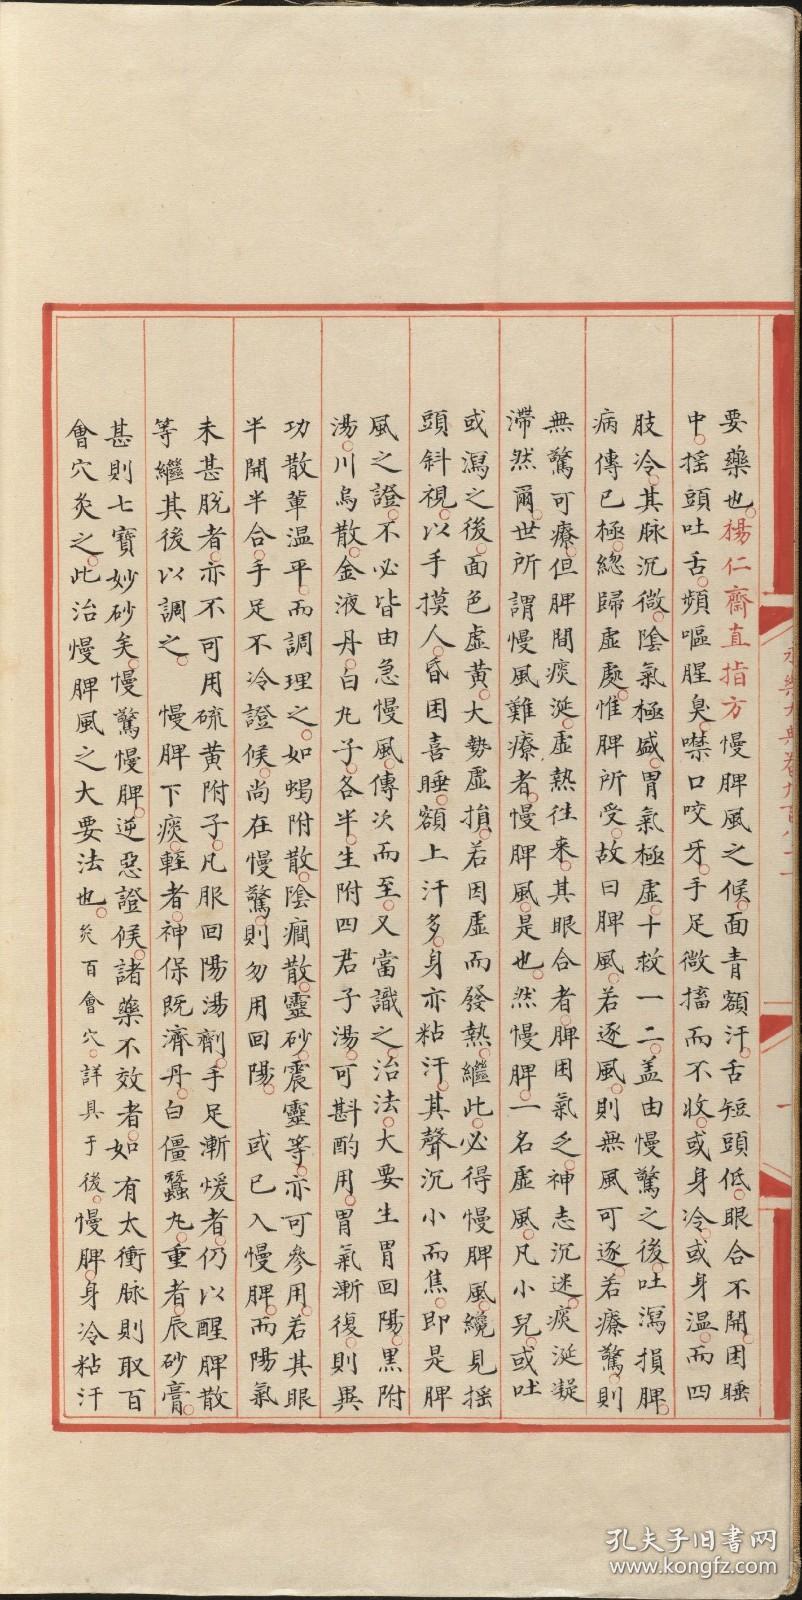 要藥也楊仁齋直指方慢脾風之候面青額汗舌短頭低眼合不開困睡
中搖頭吐舌頻嘔腥臭噤口咬牙手足微搐而不收或身冷或身溫而四
肢冷其脉沉微陰氣極盛胃氣極虛十救一二蓋由慢驚之後吐瀉損脾
病傳已極總歸虛處惟脾所受故曰脾風若逐風則無風可逐若療驚則
無驚可療但脾間痰涎虛熱往來其眼合者脾困氣乏神志沉迷痰涎凝
滯然爾世所謂慢風難療者慢脾風是也然慢脾一名虛風凡小兒或吐
或瀉之後面色虛黃大勢虛損若因虛而發熱繼此必得慢脾風纔見搖
頭斜視以手摸人昏困喜睡額上汗多身亦粘汗其聲沉小而焦即是脾
風之證不必皆由急慢風傳次而至又當識之治法大要生胃回陽黑附
湯川烏散金液丹白丸子各半生附四君子湯可斟酌用胃氣漸復則異
功散輩溫平而調理之如蝎附散陰癇散靈砂震靈等亦可參用若其眼
半開半合手足不冷證候尚在慢驚則勿用回陽 或已入慢脾而陽氣
未甚脫者亦不可用硫黃附子凡服回陽湯劑手足漸煖者仍以醒脾散
等繼其後以調之 慢脾下痰輕者神保既濟丹白僵蠶丸重者辰砂膏
甚則七寶妙砂矣慢驚慢脾逆惡證候諸藥不效者如有太衝脉則取百
會穴灸之此治慢脾風之大要法也灸百會穴詳具于後慢脾身冷粘汗
永樂大典卷九百八十一
一
孔夫子旧书网
www.kongfz.com